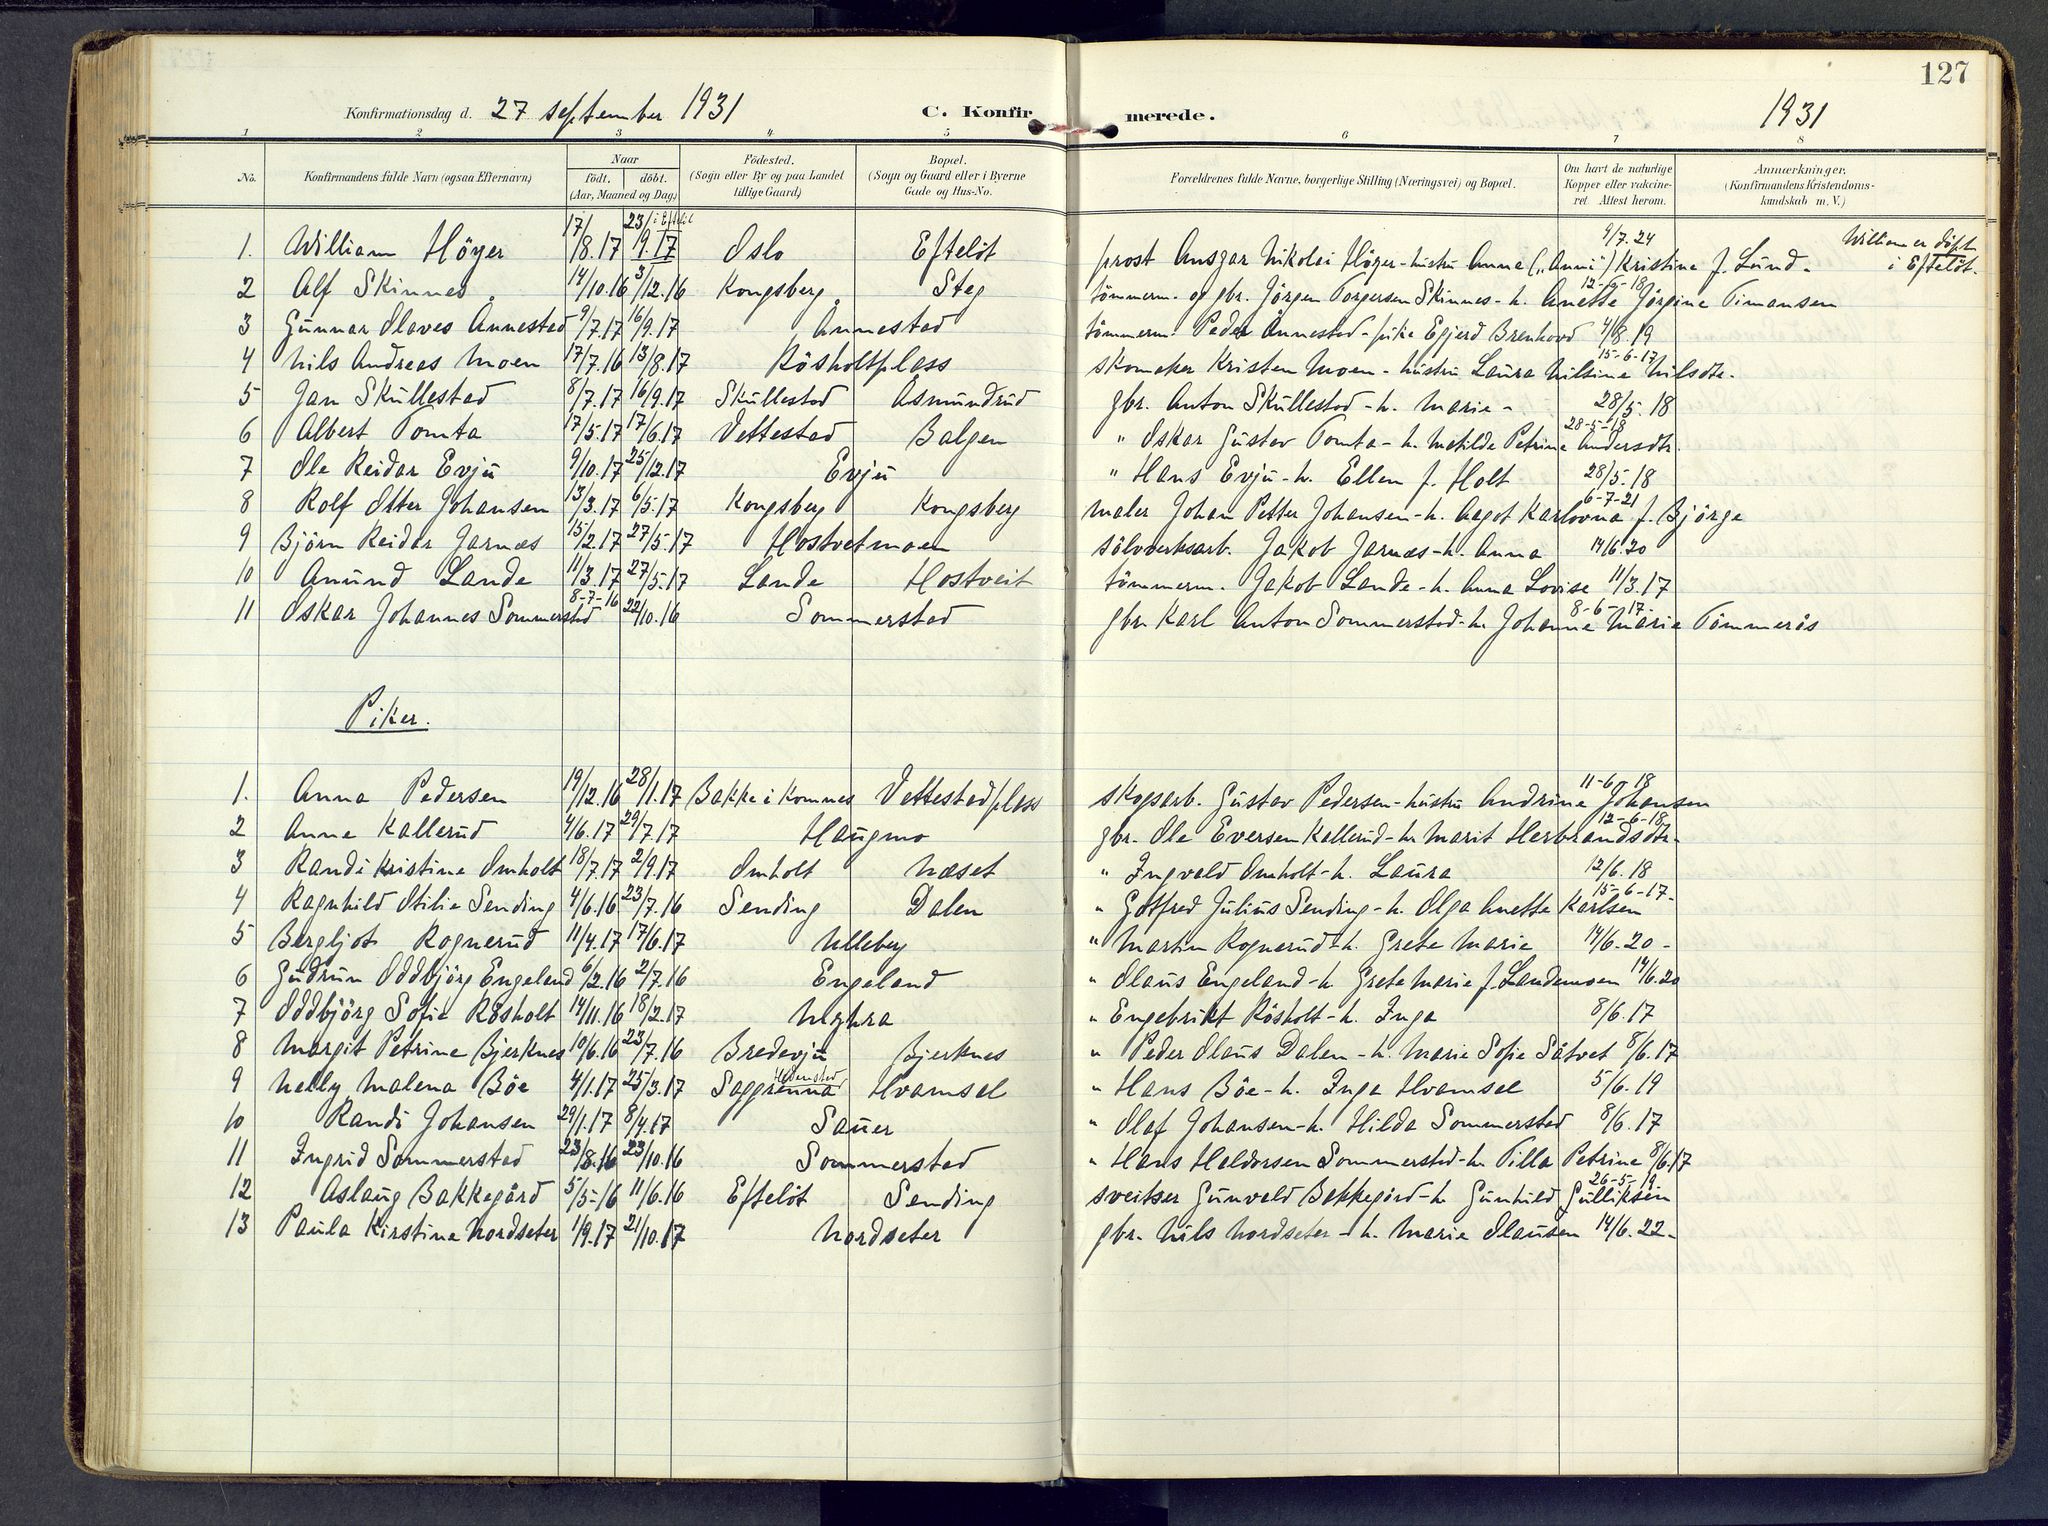 127
Konfirmationsdag d. 27 september 1931 C. Konfirmerede. 1931
1 2 3 4 5 6 7 8
No. Konfirmandens fulde Navn (ogsaa Efternavn) Naar født. døbt. (Aar, Maaned og Dag) Fødested. (Sogn eller By og paa Landet tillige Gaard) Bopæl. (Sogn og Gaard eller i Byerne Gade og Hus-No. Forældrenes fulde Navne, borgerlige Stilling (Næringsvei) og Bopæl. Om havt de naturlige Kopper eller vakcineret Attest herom. Anmærkninger. (Konfirmandens Kristendomskundskab m. V.)
1. William Höyer 17/8.17 23/9.17 i Eftelöt Oslo Eftelöt prost Ansgar Nikolai Höyer - hustru Anna („Anni") Kristine f. Lund. 9/7.24 William er döpt i Eftelöt.
2 Alf Skinnes 14/10.16 3/12.16 Kongsberg Steg tömmerm. og gbr. Jörgen Torgersen Skinnes - h. Anette Jörgine Timansen 12-6-18
3 Gunnar Olaves Annestad 9/7.17 16/9.17 Annestad tömmerm. Peder Annestad - pike Egjerd Brenhovd 4/8.19
4 Nils Andreas Moen 17/7.16 13/8.17 Rösholtplass skomaker Kristen Moen - hustru Laura Nilsine Nilsdtr. 15-6-17
5 Jan Skullestad 8/7.17 16/9.17 Skullestad Asmundrud gbr. Anton Skullestad - h. Marie - 28/5.18
6 Albert Tomta 17/5.17 17/6.17 Vettestad Balgen " Oskar Gustav Tomta - h. Matilde Petrine Andersdtr. 28-5-18
7 Ole Reidar Evju 9/10.17 25/12.17 Evju " Hans Evju - h. Ellen f. Holt 28/5.18
8 Rolf Otter Johansen 13/3.17 6/5.17 Kongsberg Kongsberg maler Johan Petter Johansen - h. Aagot Karlovna f. Björge 6-7-21
9 Björn Reidar Jarnæs 15/2.17 27/5.17 Hostvetmoen sölvverksarb. Jakob Jarnæs - h. Anna 14/6.20
10 Anund Lande 11/3.17 27/5.17 Lande Hostveit tömmerm. Jakob Lande - h. Anna Lovise 11/3.17
11 Oskar Johannes Sommerstad 8-7-16 22/10.16 Sommerstad gbr. Karl Anton Sommerstad - h. Johanne Marie Tömmerås 8-6-17.
Piker.
1. Anna Pedersen 19/12.16 28/1.17 Bakke i Komnes Vettestadplass skogsarb. Gustav Pedersen - hustru Andrine Johansen 11-6-18
2 Anne Kallerud 4/6.17 29/7.17 Haugmo gbr. Ole Eversen Kallerud - h. Marit Herbrandsdtr. 12-6-18
3 Randi Kristine Omholt 18/7.17 2/9.17 Omholt Næset " Ingvald Omholt - h. Laura 12/6.18
4 Ragnhild Otilie Sending 4/6.16 23/7.16 Sending Dalen " Gotfred Julius Sending - h. Olga Anette Karlsen 15-6-17-
5 Bergljot Rognerud 11/4.17 17/6.17 Ulleberg " Martin Rognerud - h. Grete Marie 14/6.20-
6 Gudrun Oddbjörg Engeland 6/2.16 2/7.16 Engeland " Olaus Engeland - h. Grete Marie f. Landemoen 14/6.20
7 Oddbjörg Sofie Rösholt 14/11.16 18/2.17 Myhra " Engebrikt Rösholt - h. Inga 8/6.17
8 Margit Petrine Bjerknes 10/6.16 23/7.16 Bredevju Bjerknes " Peder Olaus Dalen - h. Marie Sofie Såtvet 8/6.17
9 Nelly Malena Böe 4/1.17 25/3.17 Saggrenna Hvamsel " Hans Böe - h. Inga Hvamsel 5/6.19
10 Randi Johansen 29/1.17 8/4.17 Sauer " Olaf Johansen - h. Hilda Sommerstad 8/6.17
11 Ingrid Sommerstad 23/8.16 23/10.16 Sommerstad " Hans Haldorsen Sommerstad - h. Tilla Petrine 8/6.17
12 Aslaug Bakkegård 5/5-16 11/6.16 Eftelöt Sending sveitser Gunvald Bakkegård - h. Gunhild Gulliksen 26-5-19
13 Paula Kirstine Nordseter 1/9.17 21/10.17 Nordseter gbr. Nils Nordseter - h. Marie Olausen 14/6.22-